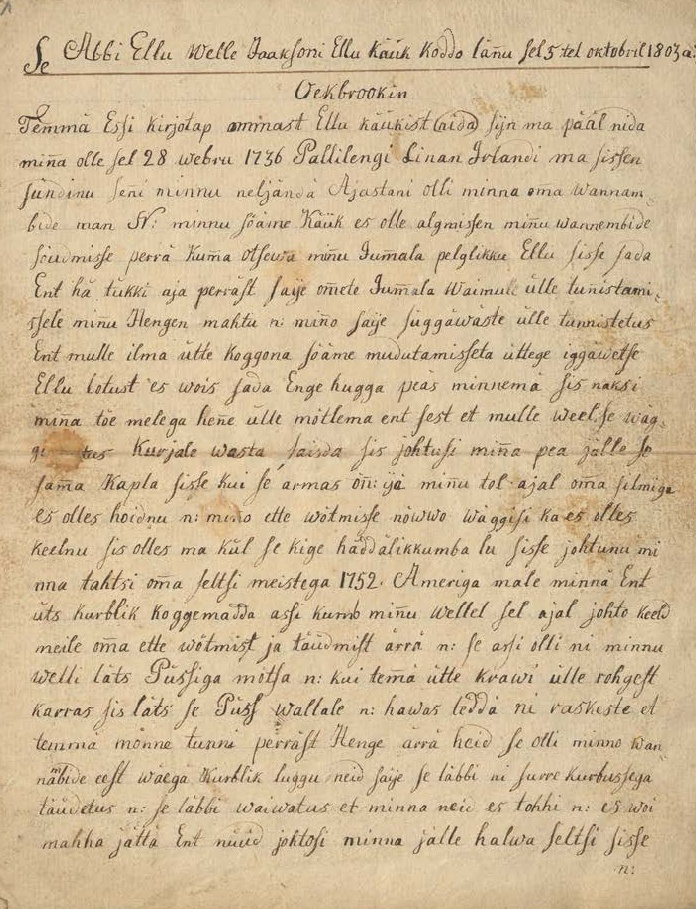 Se Abbi Ellu Welle Jaaksoni Ellu Käük Koddo länu sel 5 tel oktobril 1803 a:
Oekbrookin
Temmä Essi kirjotap ominast Ellu käükist (aida) sijn ma pääl nida
mina olle sel 28 webru 1736 Pallilengi Linan Irlandi ma sissen
sündinu seni minnu neljändä Ajastani olli minna oma wannam¬
bide man N: minnu söäme Käük es olle algmissen minu wannembide
söudmisse perrä kum̄a otsewa min̄u Jumala pelglikku Ellu sisse sada
Ent hä tükki aja perräst saije om̄ete Jum̄ala Waimule ülle tunistami¬
ssele min̄u Hengen mahtu n: min̄o saije süggäwäste ülle tunnistetus
Ent mulle ilma ütte koggona söäme mudutamisseta üttege iggäwetse
Ellu lotust es wois sada Enge hugga peäs minnemä sis näksi
min̄a töe melega hen̄e ülle mötlema ent sest et mulle weel se wäg¬
gi tus Kurjale wasta saisda sis johtusi min̄a pea jälle se
sam̄a Kapla sisse kui se armas on̄: ijä min̄u tol ajal om̄a silmiga
es olles hoidnu n: min̄o ette wötmisse nöwwo wäggisi ka es olles
keelnu sis olles ma kül se kige häddälikkumba lu sisse johtunu mi
nna tahtsi om̄a seltsi meistega 1752. Ameriga male minnä Ent
üts kurblik koggemadda assi kumb min̄u wellel sel ajal johto keeld
meile om̄a ette wötmist ja täüdmist ärrä n: se assi olli ni minnu
welli läts Püssiga mötsa n: kui tem̄ä ütte krawi ülle rohgest
karras sis läts se Püss wallale n: hawas teddä ni raskiste et
temma mönne tunni perräst Henge ärrä heid se olli minno wan
nämbide eest wäega Kurblik luggu neid saije se läbbi ni surre kurbussega
täüdetus n: se läbbi waiwatus et minna neid es tohhi n: es woi
mahha jättä Ent nüüd joktosi minna jälle halwa seltsi sisse
n: